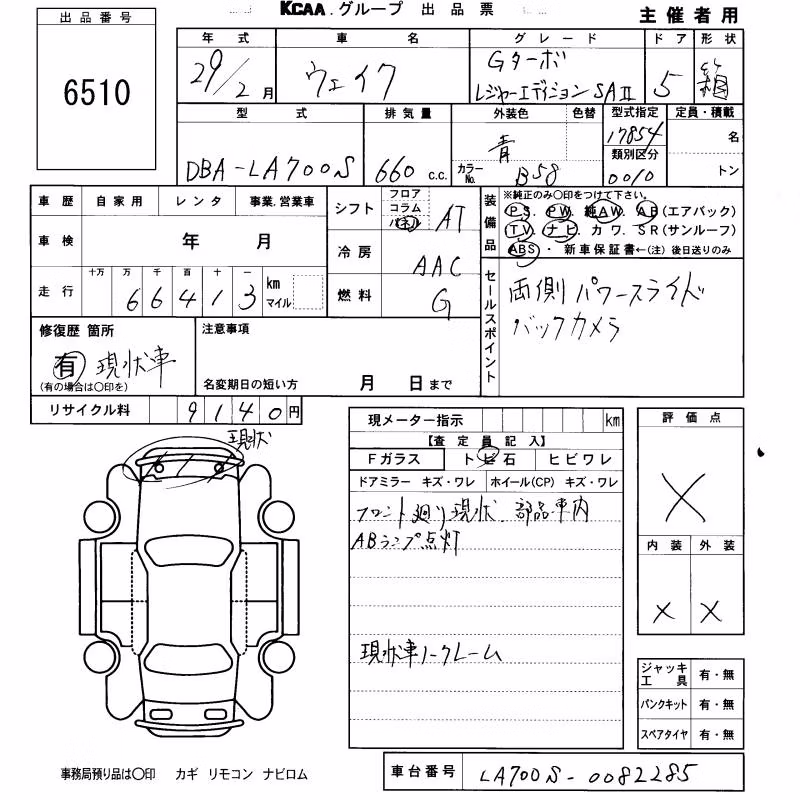 KCAA.グループ 出品票
主催者用
出品番号
6510
年式 車名 グレード ドア 形状
29/2月 ウェイク Gターボ
レジャーエディションSAⅡ 5 箱
型式 排気量 外装色 色替 型式指定 定員・積載
DBA-LA700S 660 c.c. 青 17854 名
カラーNo. B58 類別区分 0010 トン
車歴 自家用 レンタ 事業.営業車
シフト フロア コラム パネル AT
車検 年 月
冷房 AAC
走行 十万 万 千 百 十 一
66413 km マイル
燃料 G
装備品 ※純正のみ〇印をつけて下さい。
P.S. PW. 純AW. AB(エアバック)
TV. ナビ. カワ. SR(サンルーフ)
ABS・ 新車保証書←(注)後日送りのみ
セールスポイント
両側パワースライド
バックカメラ
修復歴 箇所
有 現状車
(有の場合は〇印を)
注意事項
名変期日の短い方 月 日まで
リサイクル料 9140円
現メーター指示 km
【査定員記入】
Fガラス トビ石 ヒビワレ
ドアミラー キズ・ワレ ホイール(CP) キズ・ワレ
フロント廻り現状、部品車内
ABランプ点灯
現状車ノークレーム
現状
評価点
X
内装 外装
X X
ジャッキ工具 有・無
パンクキット 有・無
スペアタイヤ 有・無
事務局預り品は〇印 カギ リモコン ナビロム
車台番号 LA700S-0082285